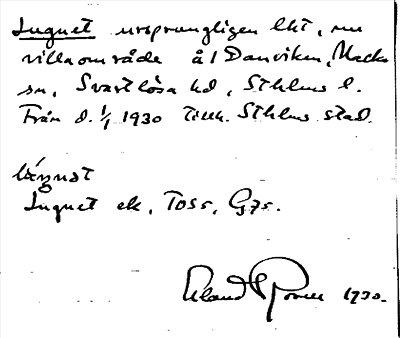 Lugnet ursprungligen lht, nu
villaområde å / Danviken, Nacka
sn, Svartlösa hd, Sthlms l.
Från d. 1/1 1930 Tillh. Sthlms stad.
Lugnet ek, Toss, G7r.
1930.